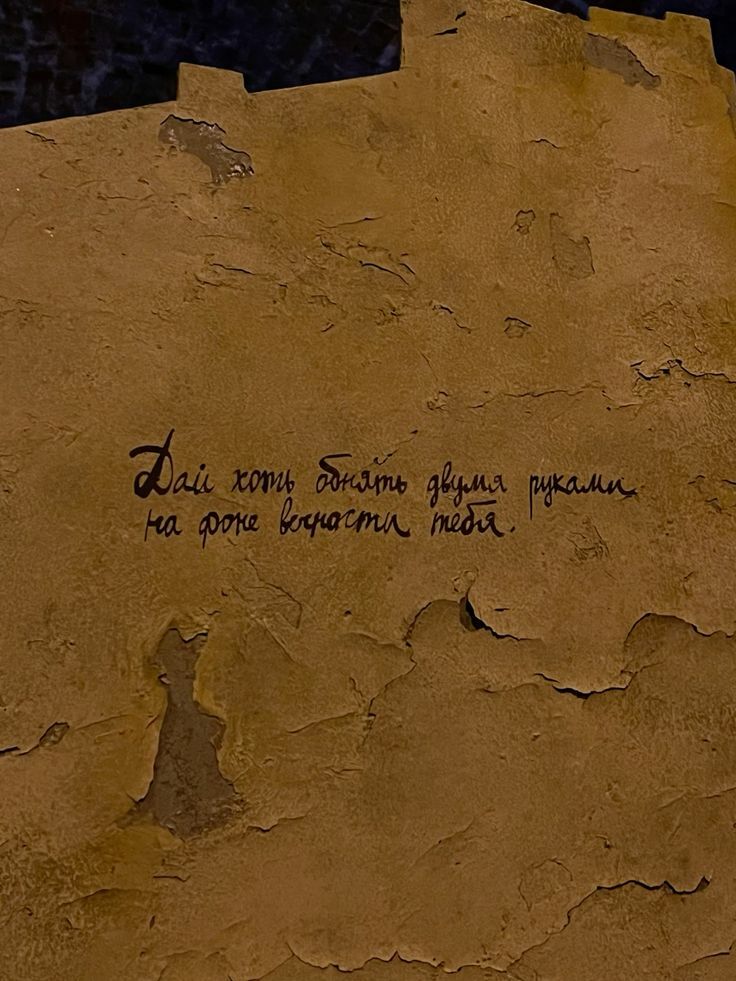 Дай хоть обнять двумя руками
на фоне вечности тебя.